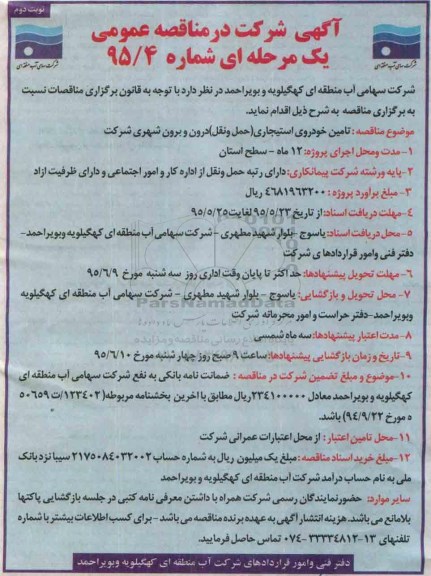 نوبت دوم
آگهی شرکت در مناقصه عمومی
یک مرحله ای شماره ۹۵/۴
شرکت سهامی آب منطقه ای
شرکت سهامی آب منطقه ای
شرکت سهامی آب منطقه ای کهگیلویه و بویراحمد در نظر دارد با توجه به قانون برگزاری مناقصات نسبت
به برگزاری مناقصه به شرح ذیل اقدام نماید.
موضوع مناقصه : تامین خودروی استیجاری(حمل ونقل)درون و برون شهری شرکت
۱-مدت ومحل اجرای پروژه: ۱۲ ماه - سطح استان
۲-پایه ورشته شرکت پیمانکاری: دارای رتبه حمل ونقل از اداره کار و امور اجتماعی و دارای ظرفیت ازاد
۳- مبلغ برآورد پروژه : ۴۶۸۱۹۶۳۲۰۰ ریال
۴-مهلت دریافت اسناد: از تاریخ ۹۵/۵/۲۳ لغایت۹۵/۵/۲۵
۵-محل دریافت اسناد: یاسوج -بلوار شهید مطهری - شرکت سهامی آب منطقه ای کهگیلویه وبویراحمد-
دفتر فنی وامور قراردادهای شرکت
۶-مهلت تحویل پیشنهادها: حداکثر تا پایان وقت اداری روز سه شنبه مورخ ۹۵/۶/۹
۷- محل تحویل و بازگشایی: یاسوج - بلوار شهید مطهری - شرکت سهامی آب منطقه ای کهگیلویه
وبویراحمد-دفتر حراست و امور محرمانه شرکت
۸-مدت اعتبار پیشنهادها: سه ماه شمسی
۹-تاریخ و زمان بازگشایی پیشنهادها: ساعت ۹ صبح روز چهار شنبه مورخ ۹۵/۶/۱۰
۱۰-موضوع و مبلغ تضمین شرکت در مناقصه : ضمانت نامه بانکی به نفع شرکت سهامی آب منطقه
ای کهگیلویه و بویراحمد معادل ۲۳۴۱۰۰۰۰۰ریال مطابق با اخرین بخشنامه مربوطه(۱۲۳۴۰۲/ت۵۰۶۵۹
ه مورخ ۹۴/۹/۲۲) باشد.
۱۱-محل تامین اعتبار : از محل اعتبارات عمرانی شرکت
۱۲-مبلغ خرید اسناد مناقصه: مبلغ یک میلیون ریال به شماره حساب ۲۱۷۵۰۸۴۰۳۲۰۰۲ سیبا نزد بانک
ملی به نام حساب درآمد شرکت آب منطقه ای کهگیلویه و بویراحمد
سایر موارد: حضور نمایندگان رسمی شرکت همراه با داشتن معرفی نامه کتبی در جلسه بازگشایی پاکتها
بلامانع می باشد. هزینه انتشار آگهی به عهده برنده مناقصه می باشد - برای کسب اطلاعات بیشتر با شماره
تلفنهای ۱۳-۳۳۳۳۴۸۱۲-۰۷۴ تماس حاصل فرمایید.
دفتر فنی وامور قراردادهای شرکت آب منطقه ای کهگیلویه وبویراحمد
ParsNamadData